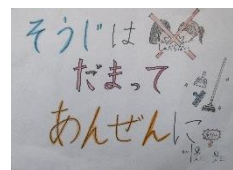 そうじは
だまって
あんぜんに